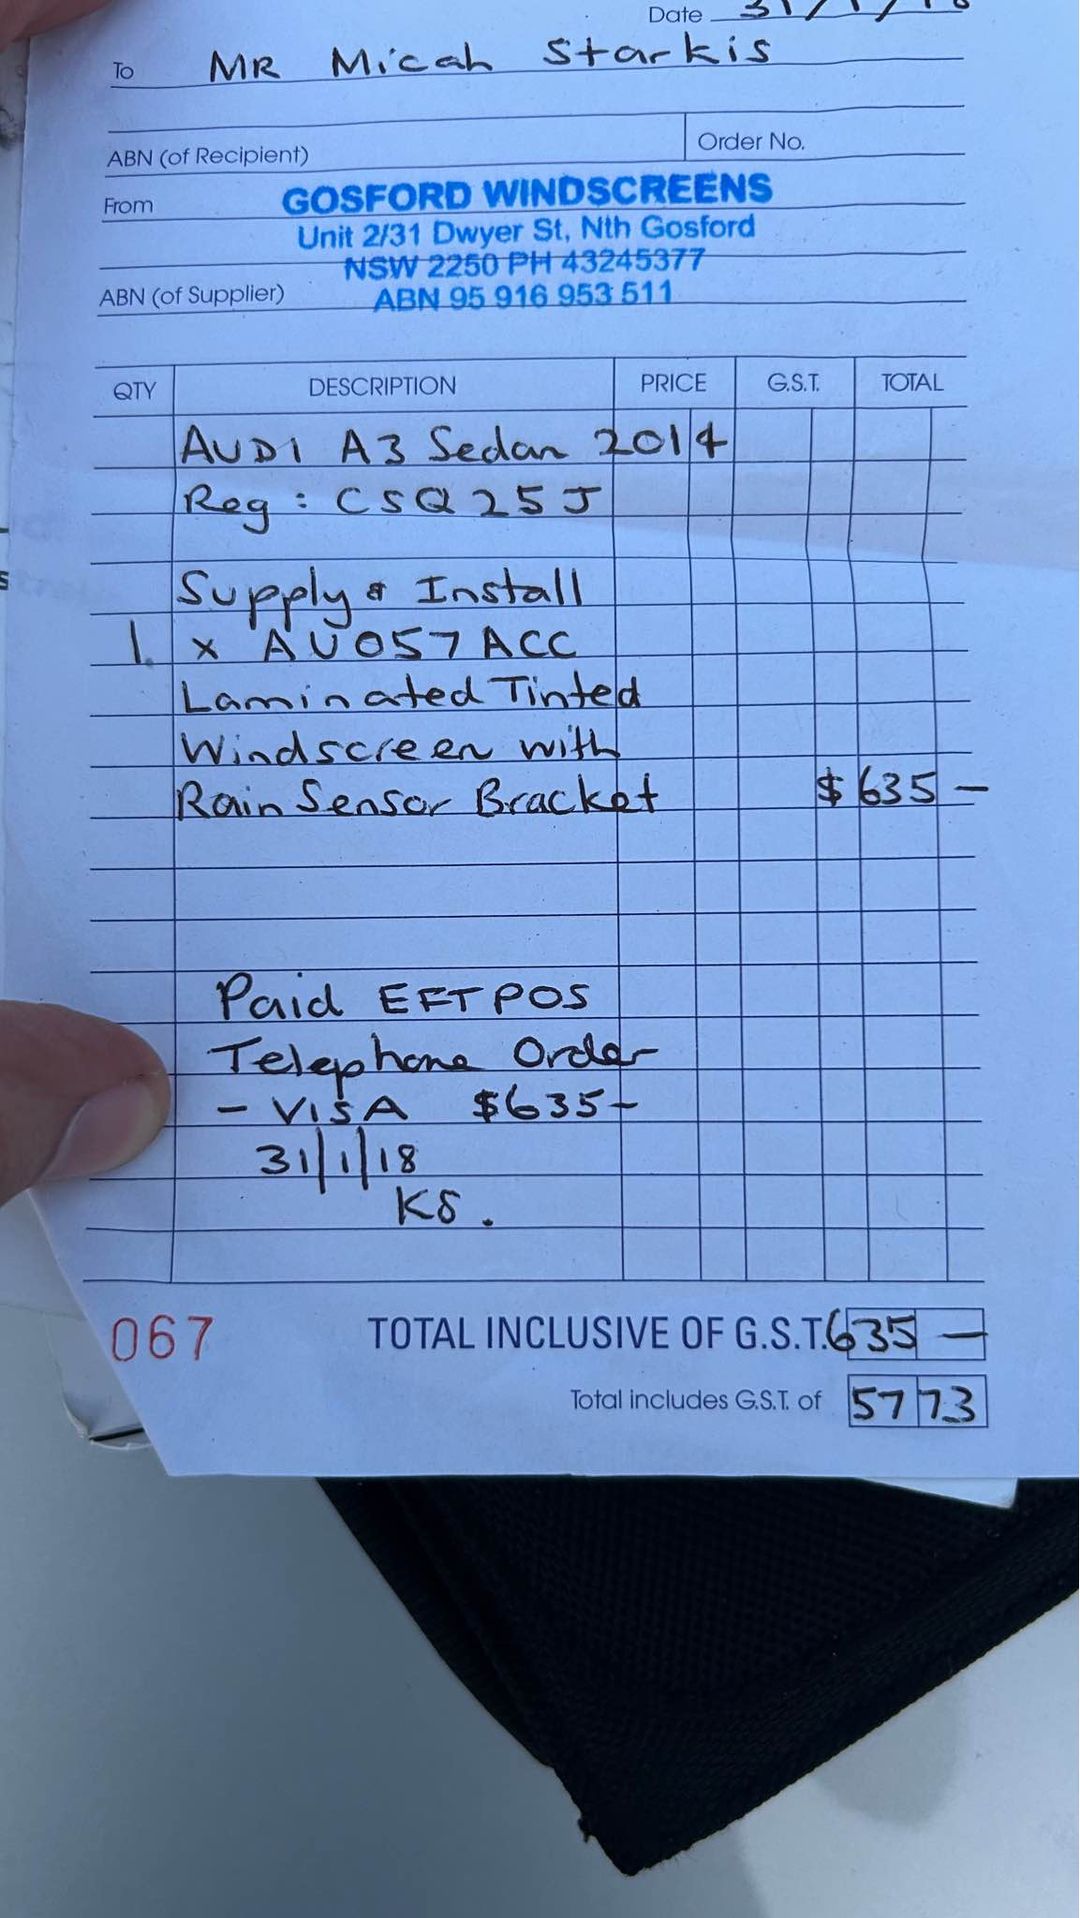 Date 31/1/18
To MR Micah Starkis
ABN (of Recipient) Order No.
From GOSFORD WINDSCREENS
Unit 2/31 Dwyer St, Nth Gosford
NSW 2250 PH 43245377
ABN (of Supplier) ABN 95 916 953 511
QTY DESCRIPTION PRICE G.S.T. TOTAL
AUDI A3 Sedan 2014
Reg: CSQ25J
Supply & Install
1. x AU057ACC
Laminated Tinted
Windscreen with
Rain Sensor Bracket $635 -
Paid EFTPOS
Telephone Order
- VISA $635-
31/1/18
KS.
067 TOTAL INCLUSIVE OF G.S.T. 635 -
Total includes G.S.T. of 57 73